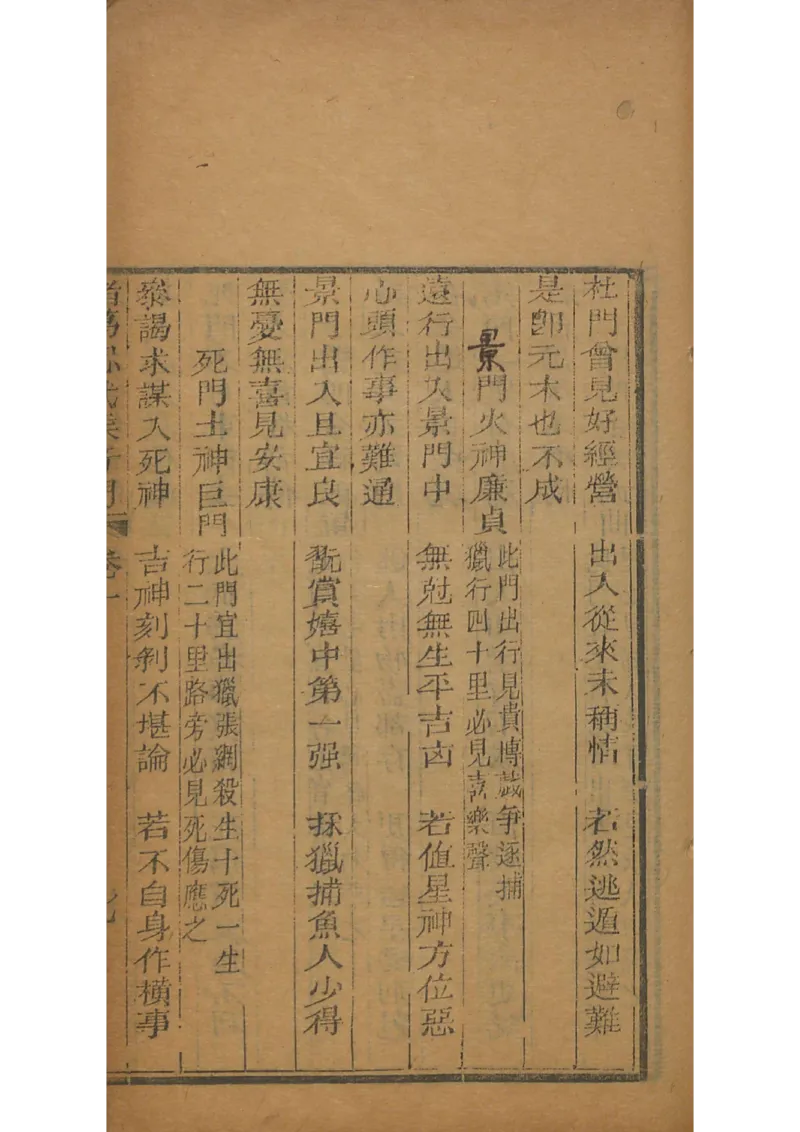 杜門曾見好經營　出入從來未稱情　若然逃遁如避難
是卽元木也不成
景門火神廉貞
此門出行見貴博藏争逐捕
獵行四十里必見喜樂聲
遠行出入景門中　無尅無生平吉凶　若值星神方位惡
心頭作事亦難通
景門出入且宜良　翫賞嬉中第一强　採獵捕魚人少得
無憂無喜見安康
死門土神巨門
此門宜出獵張網殺生十死一生
行二十里路旁必見死傷應之
叅謁求謀入死神　吉神刻剝不堪論　若不自身作橫事
卷一